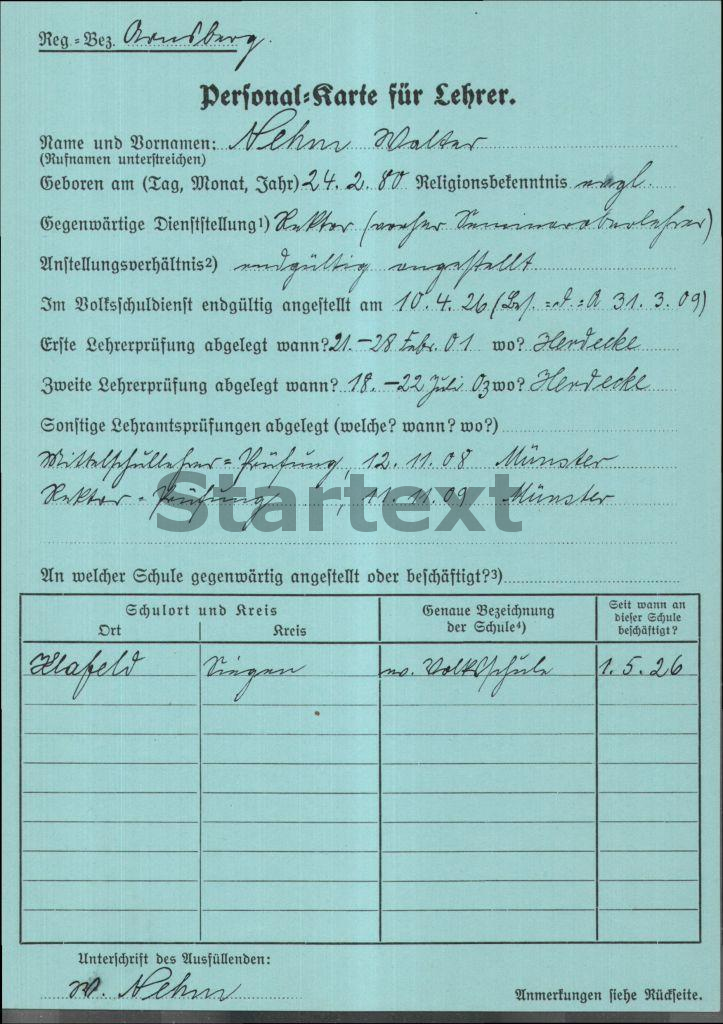 Reg.-Bez. Arnsberg.
Personal-Karte für Lehrer.
Name und Vornamen: Nehm Walter
(Rufnamen unterstreichen)
Geboren am (Tag, Monat, Jahr) 24. 2. 80 Religionsbekenntnis evgl.
Gegenwärtige Dienststellung1) Rektor (vorher Seminaroberlehrer)
Anstellungsverhältnis2) endgültig angestellt
Im Volksschuldienst endgültig angestellt am 10. 4. 26 (Bes.=d.=A 31. 3. 09)
Erste Lehrerprüfung abgelegt wann? 21.–28 Febr. 01 wo? Herdecke
Zweite Lehrerprüfung abgelegt wann? 18.–22 Juli 03 wo? Herdecke
Sonstige Lehramtsprüfungen abgelegt (welche? wann? wo?)
Mittelschullehrer=Prüfung, 12. 11. 08 Münster
Rektor=Prüfung, 11. 11. 09 Münster
Startext
An welcher Schule gegenwärtig angestellt oder beschäftigt?3)
Schulort und Kreis
Ort
Kreis
Genaue Bezeichnung
der Schule4)
Seit wann an
dieser Schule
beschäftigt?
Klafeld Siegen ev. Volksschule 1. 5. 26
Unterschrift des Ausfüllenden:
W. Nehm
Anmerkungen siehe Rückseite.